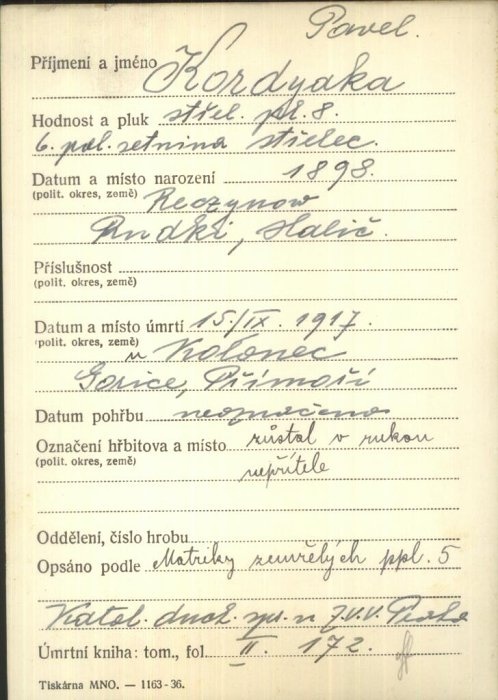 Pavel.
Příjmení a jméno Kordyaka
Hodnost a pluk střel. pl. 8.
6. pol. setnina střelec.
Datum a místo narození 1898.
(polit. okres, země) Reczynow
Rudki, Halič.
Příslušnost
(polit. okres, země)
Datum a místo úmrtí 15/IX. 1917.
(polit. okres, země) u Kolonec
Gorice, Přímoří
Datum pohřbu neoznačeno
Označení hřbitova a místo zůstal v rukou
(polit. okres, země) nepřítele
Oddělení, číslo hrobu
Opsáno podle Matriky zemřelých ppl. 5
Katol. duch. spr. u Z.V.V. Praha
Úmrtní kniha: tom., fol. II. 172.
Tiskárna MNO. — 1163-36.